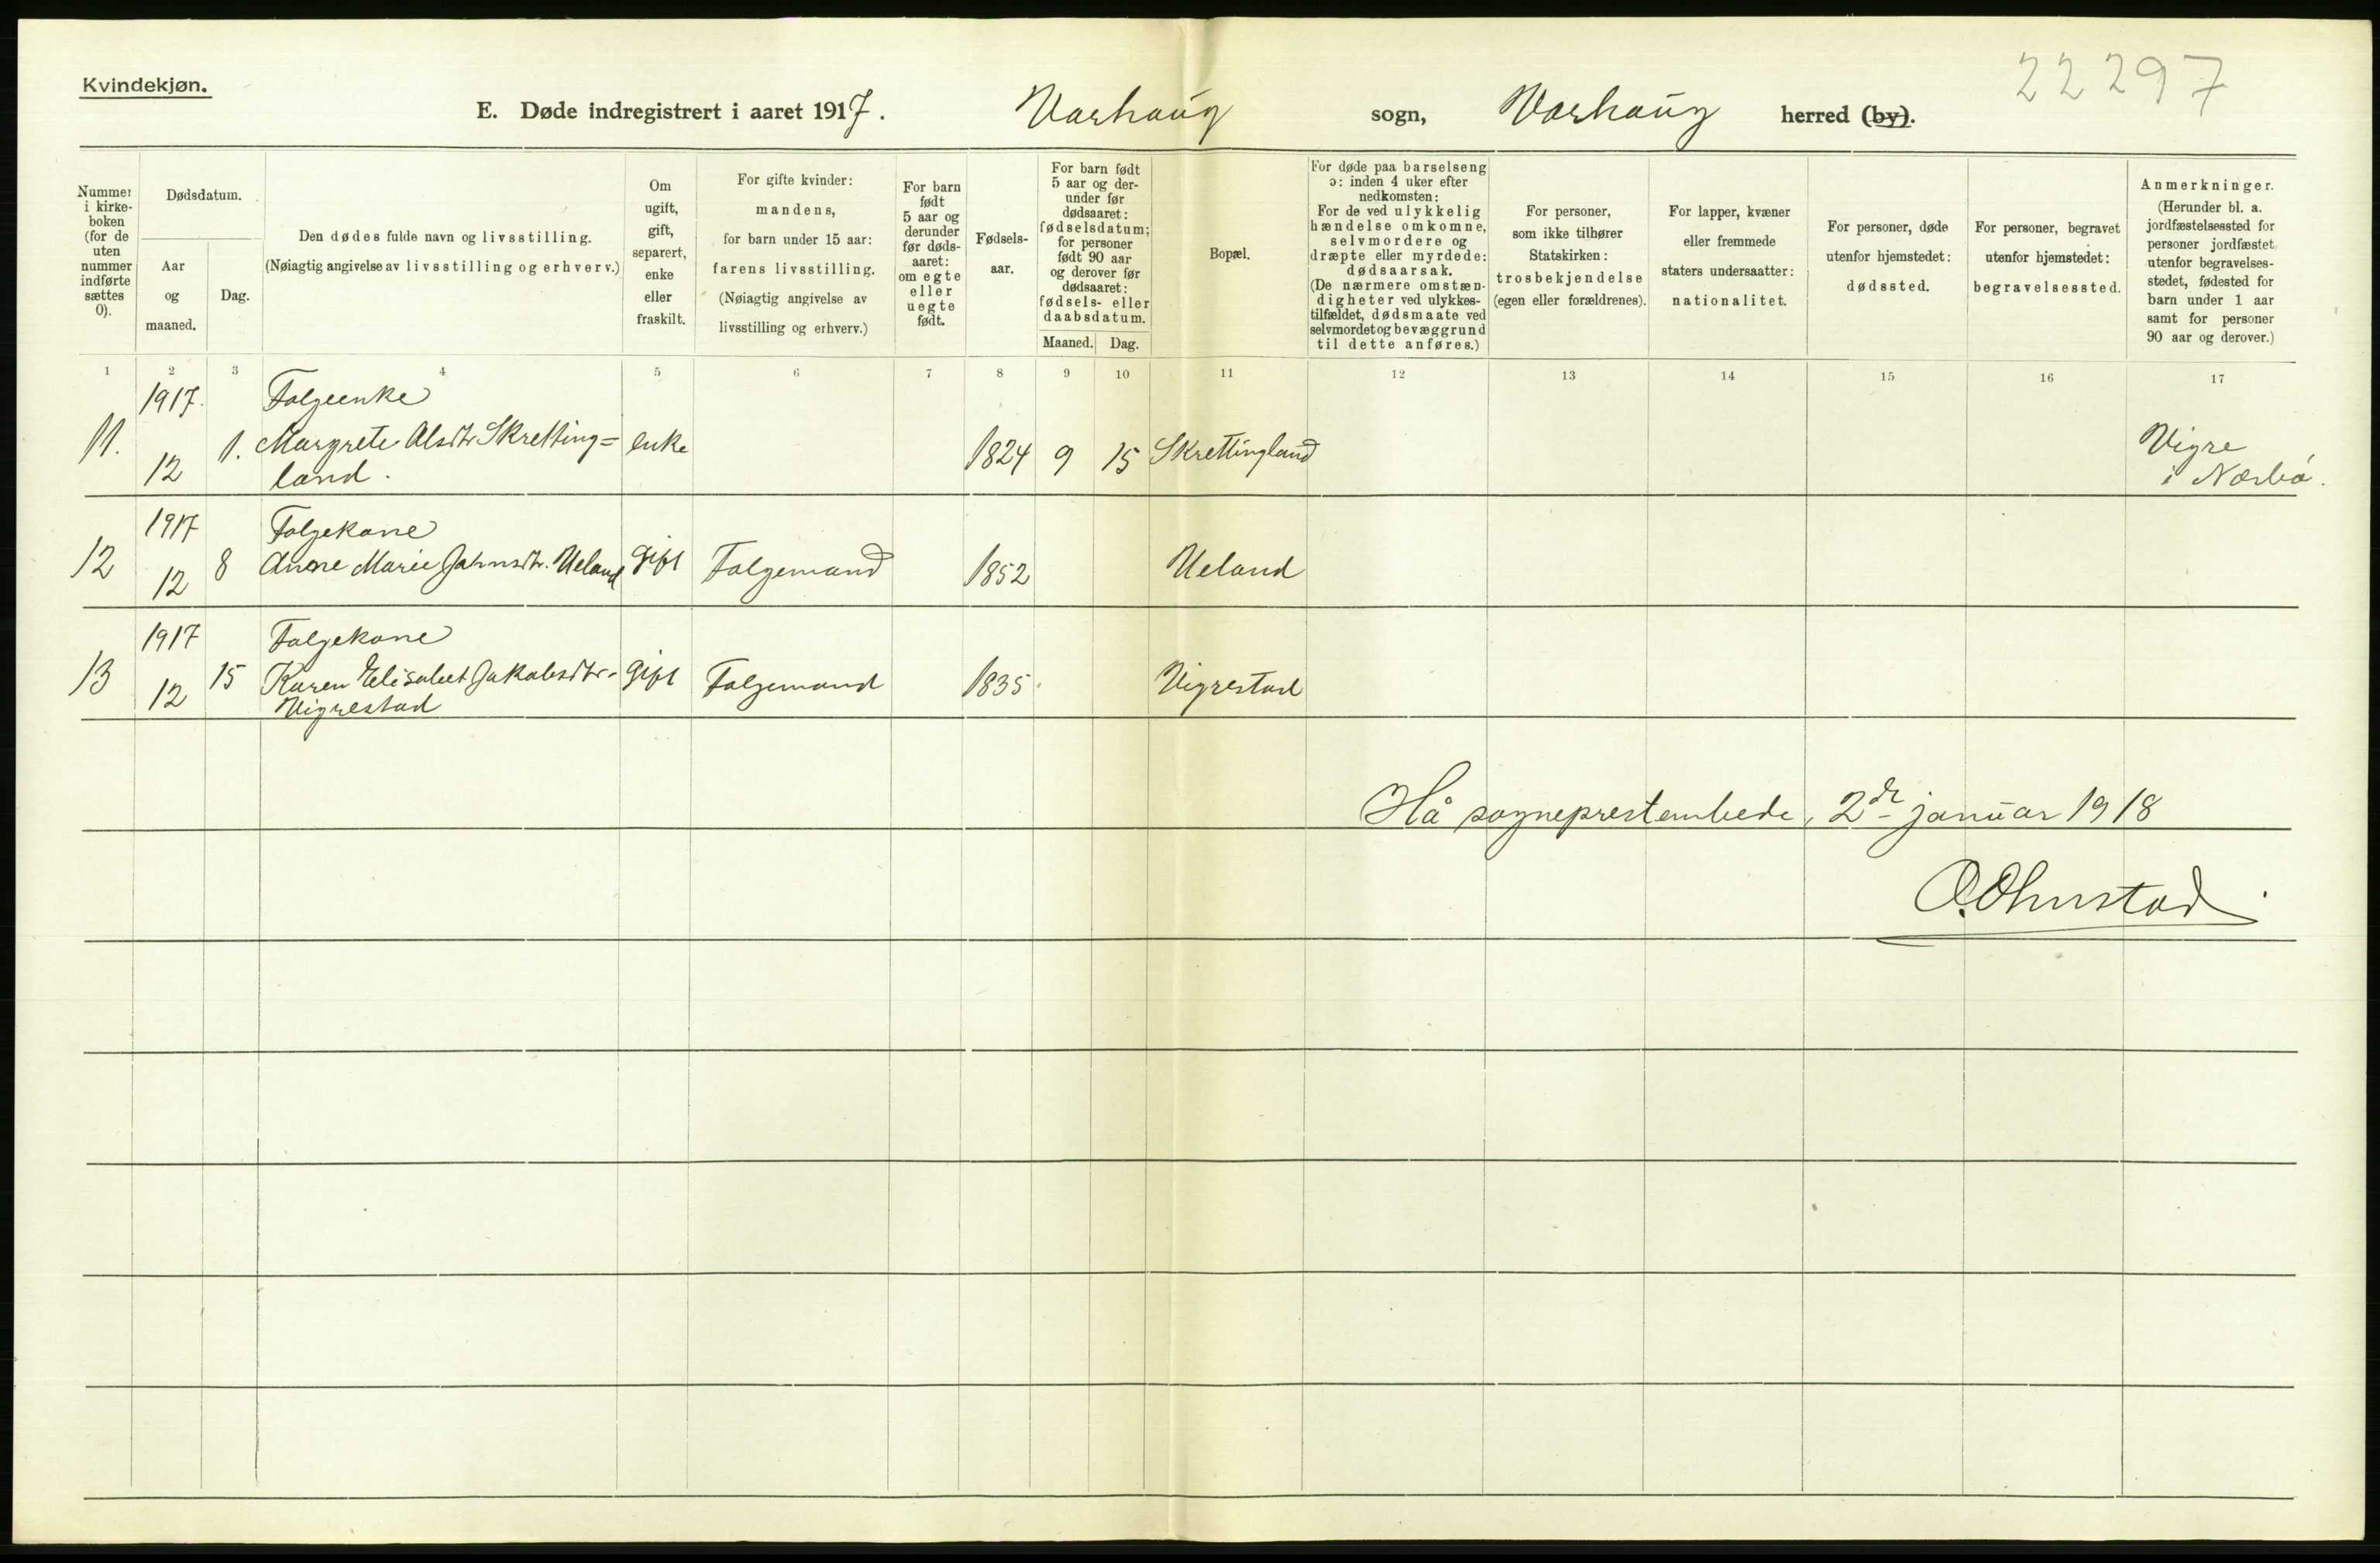 Kvindekjøn.
22297
E. Døde indregistrert i aaret 1917. Varhaug sogn, Varhaug herred (by).
Nummer i kirke-boken (for de uten nummer indførte sættes 0).
Dødsdatum.
Aar og maaned.
Dag.
Den dødes fulde navn og livsstilling.
(Nøiagtig angivelse av livsstilling og erhverv.)
Om ugift, gift, separert, enke eller fraskilt.
For gifte kvinder: mandens, for barn under 15 aar: farens livsstilling. (Nøiagtig angivelse av livsstilling og erhverv.)
For barn født 5 aar og derunder før døds-aaret: om egte eller uegte født.
Fødsels-aar.
For barn født 5 aar og der-under før dødsaaret: fødselsdatum; for personer født 90 aar og derover før dødsaaret: fødsels- eller daabsdatum.
Maaned. Dag.
Bopæl.
For døde paa barselseng ɔ: inden 4 uker efter nedkomsten: For de ved ulykkelig hændelse omkomne, selvmordere og dræpte eller myrdede: dødsaarsak. (De nærmere omstæn-digheter ved ulykkes-tilfældet, dødsmaate ved selvmordet og bevæggrund til dette anføres.)
For personer, som ikke tilhører Statskirken: trosbekjendelse (egen eller forældrenes).
For lapper, kvæner eller fremmede staters undersaatter: nationalitet.
For personer, døde utenfor hjemstedet: dødssted.
For personer, begravet utenfor hjemstedet: begravelsessted.
Anmerkninger. (Herunder bl. a. jordfæstelsessted for personer jordfæstet utenfor begravelses-stedet, fødested for barn under 1 aar samt for personer 90 aar og derover.)
1 2 3 4 5 6 7 8 9 10 11 12 13 14 15 16 17
1917. Folgeenke
11. 12 1. Margrete Alsdtr Skretting= enke 1824 9 15 Skrettingland Vigre
land. i Nærbø.
1917 Folgekone
12 12 8 Anne Marie Jahnsdtr. Ueland gift Folgemand 1852 Ueland
1917 Folgekone
13 12 15 Karen Elisabet Jakobsdtr- gift Folgemand 1835 Vigrestad
Vigrestad
Hå sogneprestembede, 2dr januar 1918
O. Ohnstad.